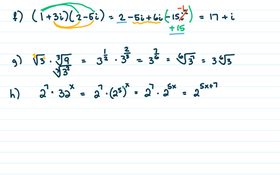 f) (1+3i)(2-5i) = 2 - 5i + 6i (-15i² -1) = 17 + i
+15
g) √3 · ∛9 = 3^{1/2} · 3^{2/3} = 3^{7/6} = ⁶√3⁷ = 3 ⁶√3
∛3²
h) 2^7 · 32^x = 2^7 · (2^5)^x = 2^7 · 2^{5x} = 2^{5x+7}